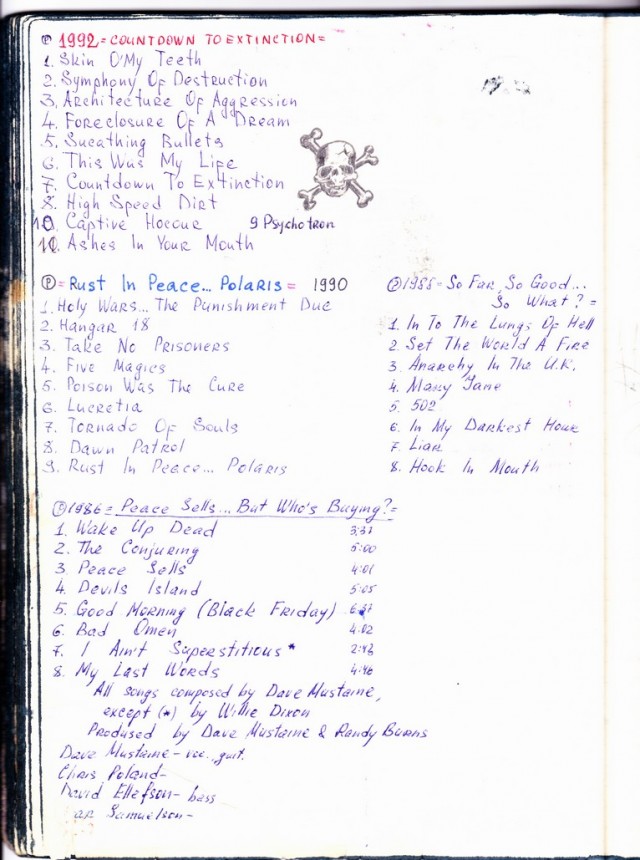 ℗ 1992 = COUNTDOWN TO EXTINCTION =
1. Skin O'My Teeth
2. Symphony Of Destruction
3. Architecture Of Aggression
4. Foreclosure Of A Dream
5. Sweathing Bullets
6. This Was My Life
7. Countdown To Extinction
8. High Speed Dirt
10. Captive Honour 9 Psychotron
11. Ashes In Your Mouth
℗ = Rust In Peace... Polaris = 1990
1. Holy Wars... The Punishment Due
2. Hangar 18
3. Take No Prisoners
4. Five Magics
5. Poison Was The Cure
6. Lucretia
7. Tornado Of Souls
8. Dawn Patrol
9. Rust In Peace... Polaris
℗ 1988 = So Far, So Good...
So What? =
1. In To The Lungs Of Hell
2. Set The World A Fire
3. Anarchy In The U.K.
4. Mary Jane
5. 502
6. In My Darkest Hour
7. Liar
8. Hook In Mouth
℗ 1986 = Peace Sells... But Who's Buying? =
1. Wake Up Dead 3:37
2. The Conjuring 5:00
3. Peace Sells 4:01
4. Devils Island 5:05
5. Good Morning (Black Friday) 6:37
6. Bad Omen 4:02
7. I Ain't Superstitious * 2:43
8. My Last Words 4:46
All songs composed by Dave Mustaine,
except (*) by Willie Dixon
Prodused by Dave Mustaine & Randy Burns
Dave Mustaine - voc., guit.
Chris Poland -
David Ellefson - bass
ar Samuelson -